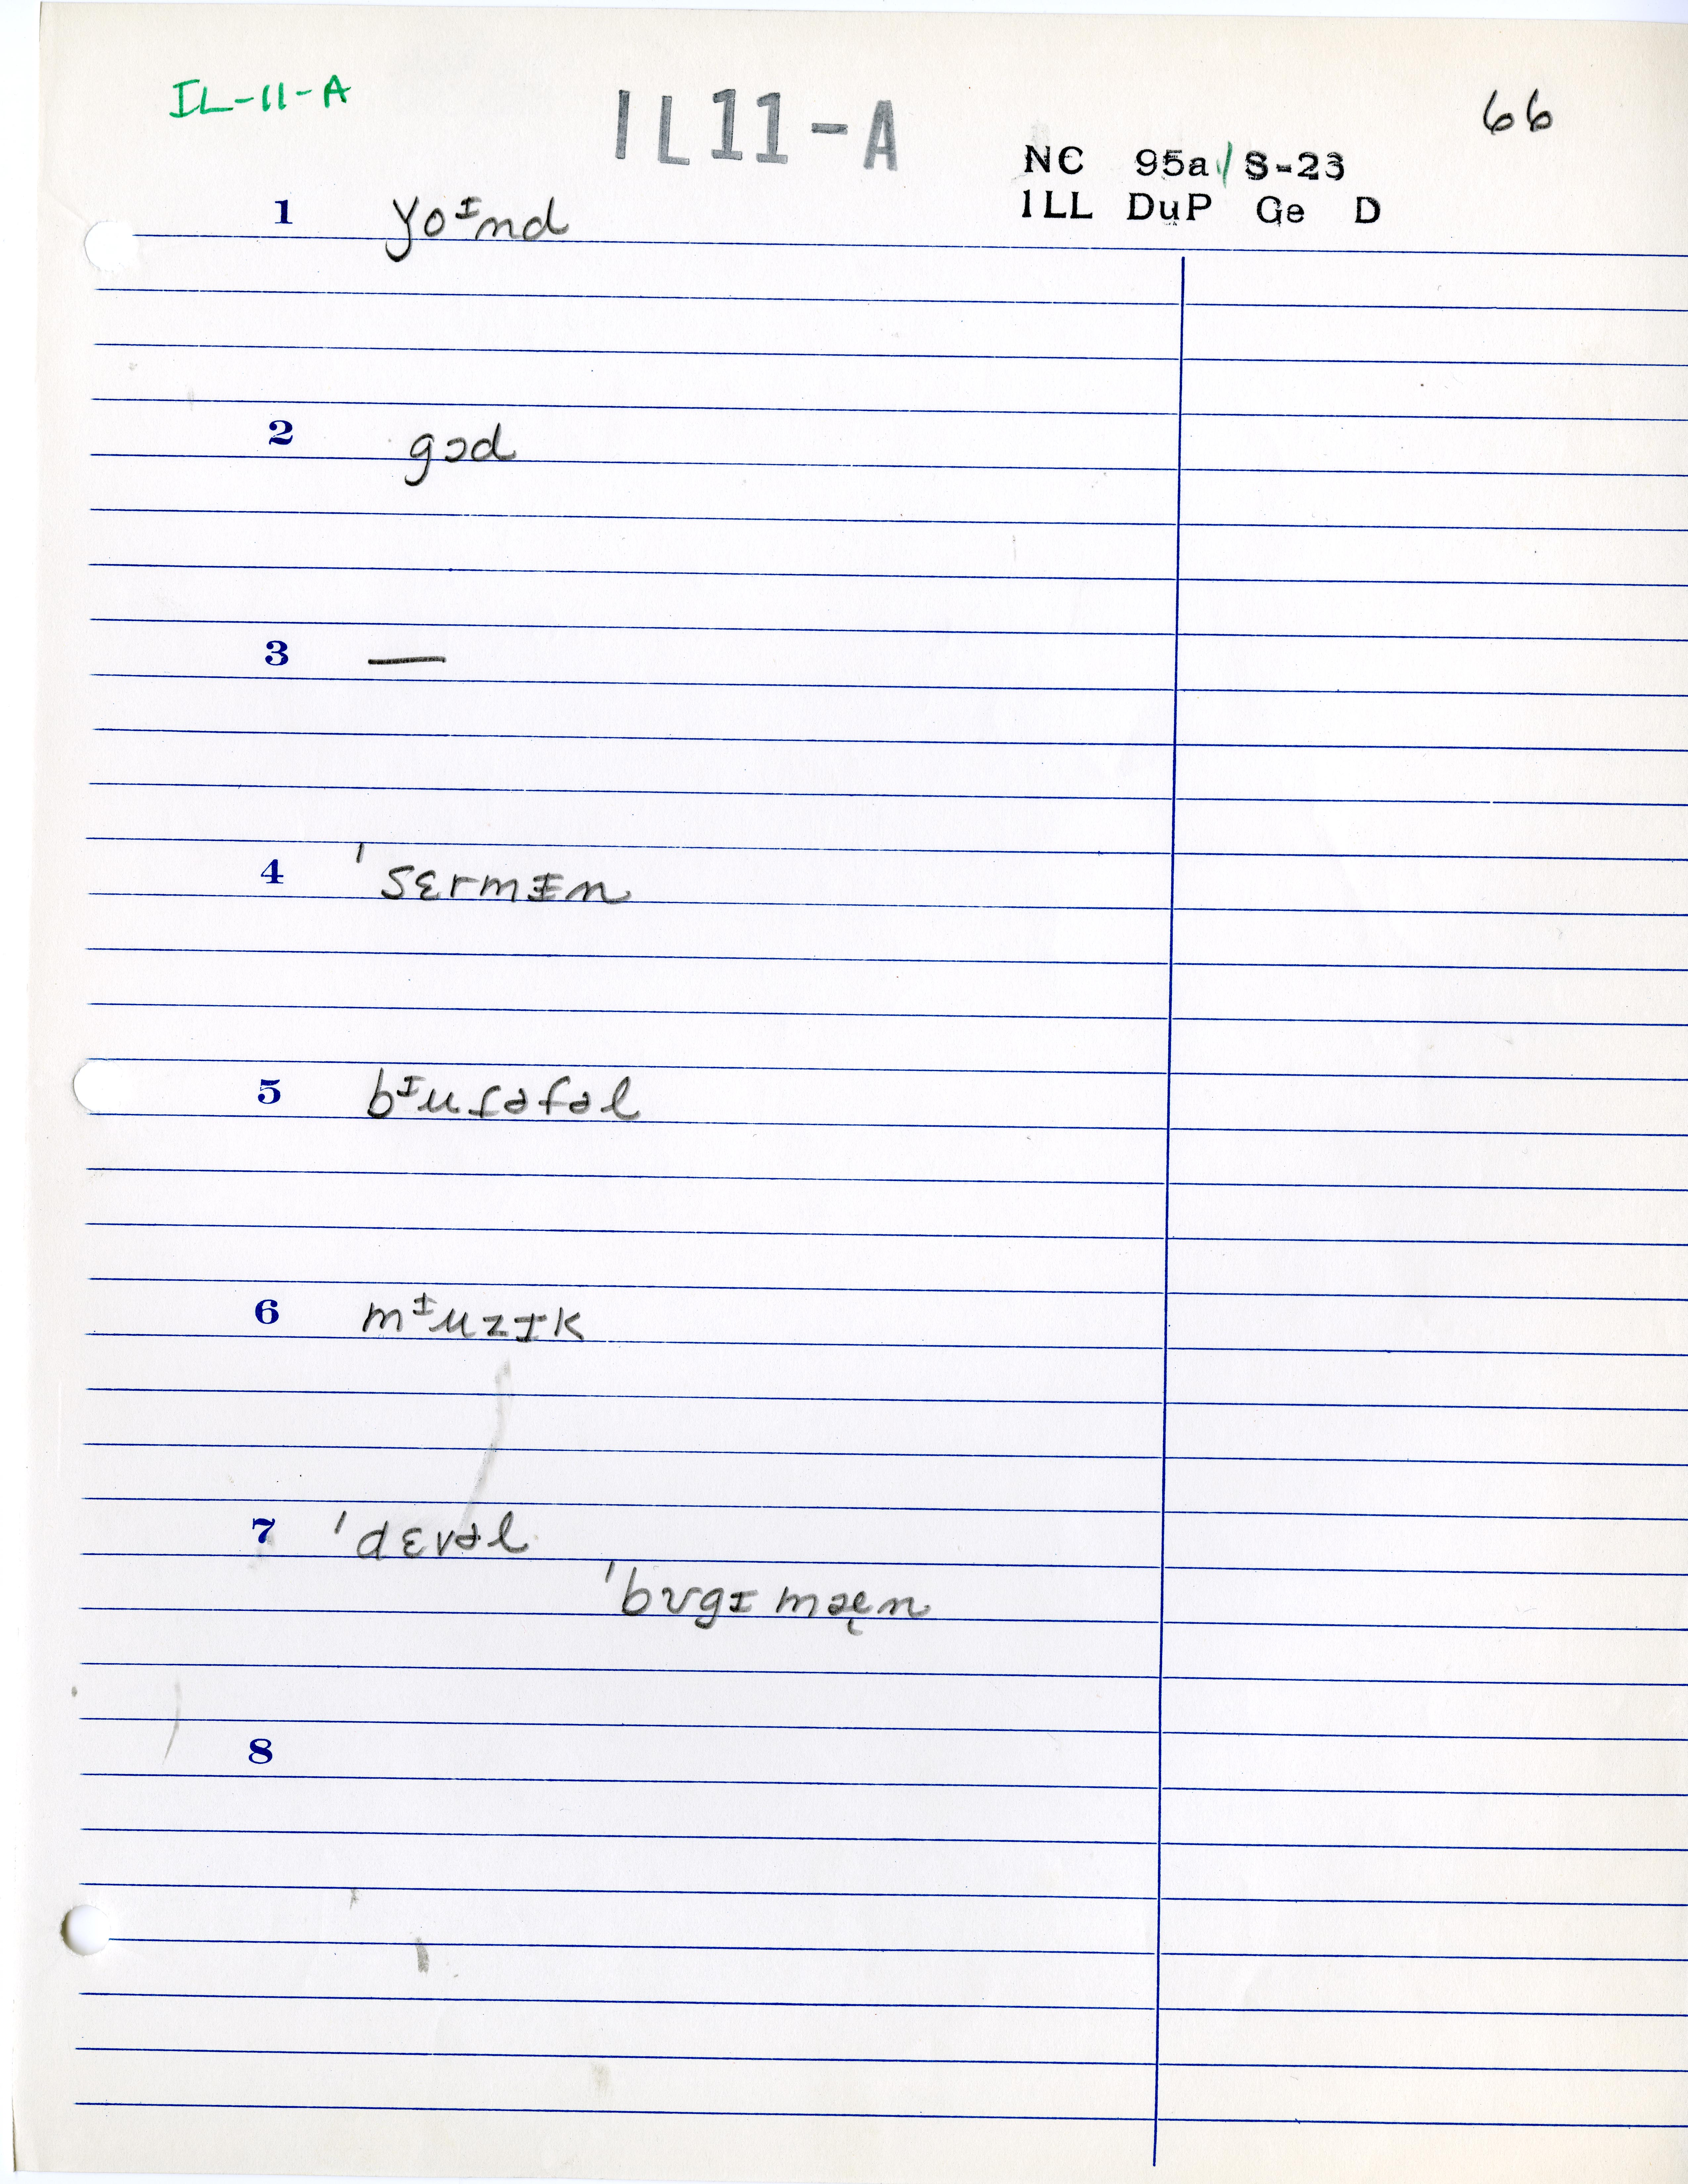 IL-11-A
IL11-A
66
NC 95a/S-23
ILL DuP Ge D
1 yoᶦnd
2 gɔd
3 —
4 ˈsɛrmɪn
5 bᶦuɾəfəl
6 mᶦuzɪk
7 ˈdɛvəl
ˈbʊgɪ mæ̨n
8